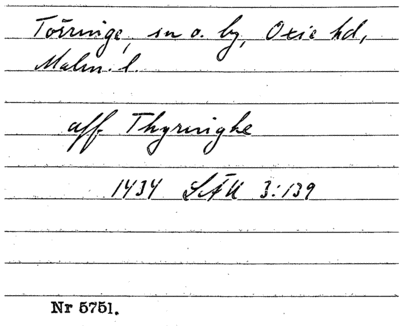 Törringe, sn o. by, Oxie hd,
Malm. l.
aff Thyringhe
1434 LÄU 3:139
Nr 5751.